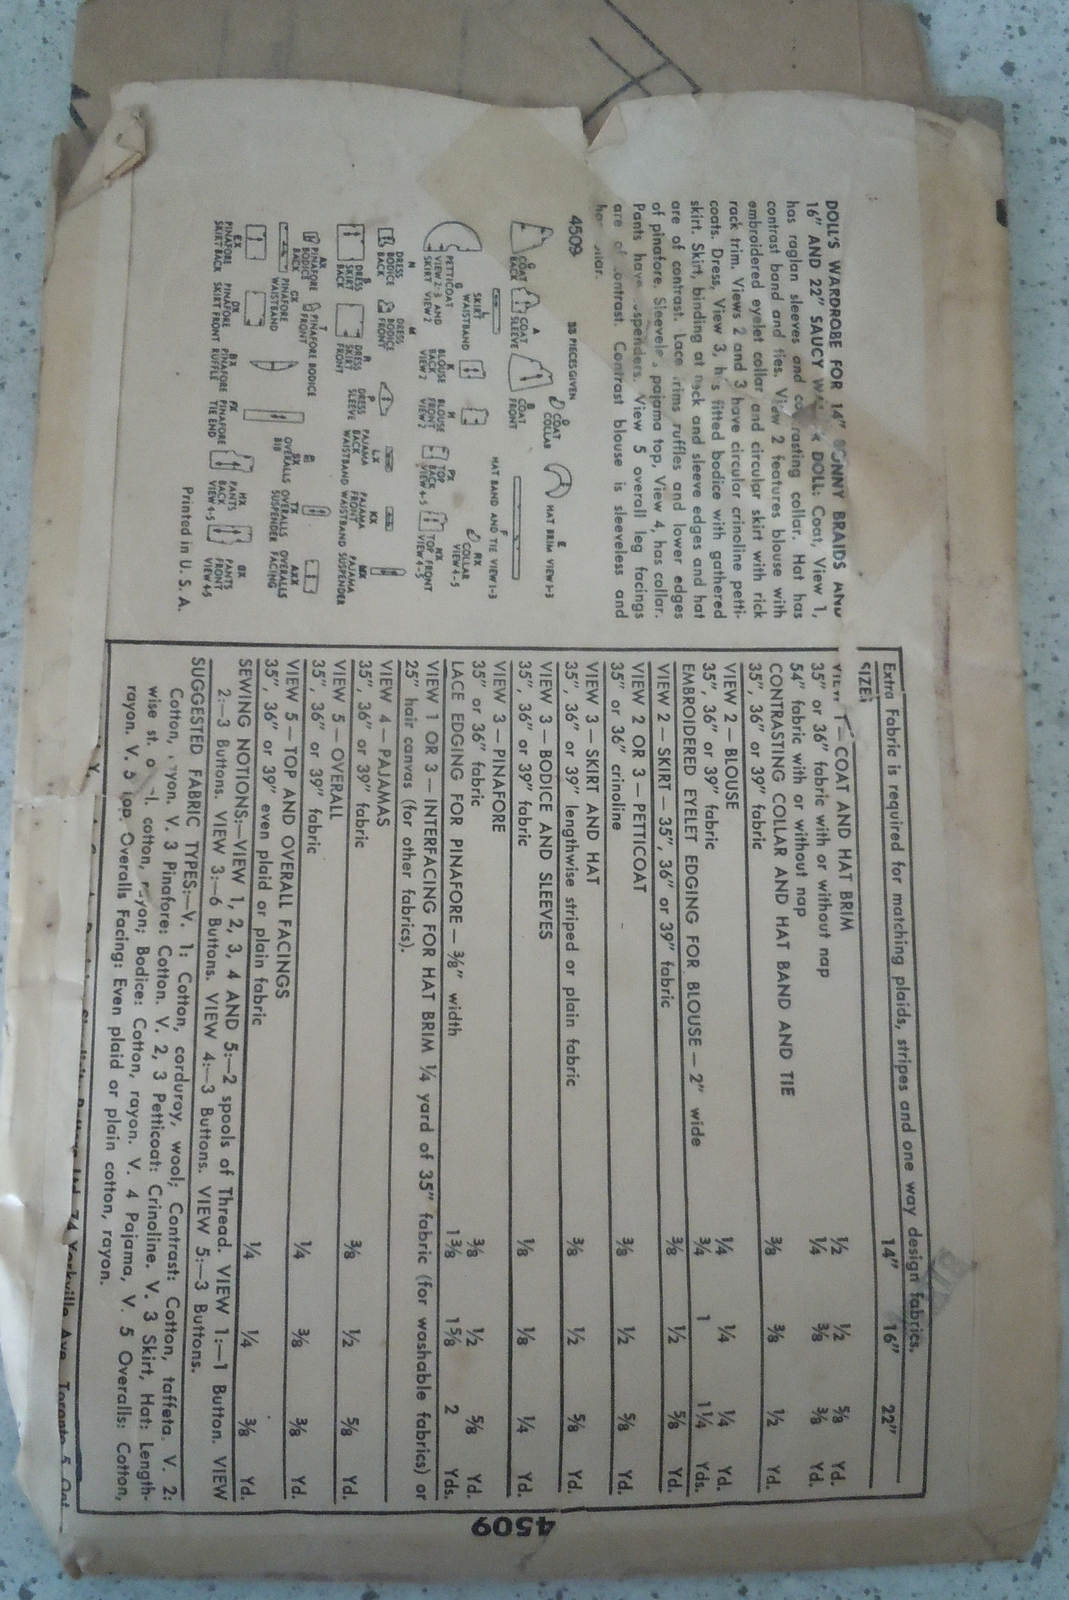 DOLL'S WARDROBE FOR 14" BONNY BRAIDS AND
16" AND 22" SAUCY DOLL: Coat, View 1,
has raglan sleeves and contrasting collar. Hat has
contrast band and ties. View 2 features blouse with
embroidered eyelet collar and circular skirt with rick
rack trim. Views 2 and 3 have circular crinoline petti-
coats. Dress, View 3, has fitted bodice with gathered
skirt. Skirt, binding at neck and sleeve edges and hat
are of contrast. Lace trims ruffles and lower edges
of pinafore. Sleeveless pajama top, View 4, has collar.
Pants have suspenders. View 5 overall leg facings
are of contrast. Contrast blouse is sleeveless and
has collar.
4509 33 PIECES GIVEN
C COAT BACK
A COAT SLEEVE
B COAT FRONT
D COAT COLLAR
E HAT BRIM VIEW 1-3
F HAT BAND AND TIE VIEW 1-3
G PETTICOAT VIEW 2-3 AND SKIRT VIEW 2
L SKIRT WAISTBAND
K BLOUSE BACK VIEW 2
H BLOUSE FRONT VIEW 2
PX TOP BACK VIEW 4-5
NX TOP FRONT VIEW 4-5
RX COLLAR VIEW 4-5
N DRESS BODICE BACK
M DRESS BODICE FRONT
S DRESS SKIRT BACK
R DRESS SKIRT FRONT
P DRESS SLEEVE
LX PAJAMA BACK WAISTBAND
KX PAJAMA FRONT WAISTBAND
MX PAJAMA SUSPENDER
AX PINAFORE BODICE BACK
T PINAFORE BODICE FRONT
CX PINAFORE WAISTBAND
BX PINAFORE RUFFLE
FX PINAFORE TIE END
SX OVERALLS BIB
TX OVERALLS SUSPENDER
AXX OVERALLS FACING
EX PINAFORE SKIRT BACK
DX PINAFORE SKIRT FRONT
HX PANTS BACK VIEW 4-5
GX PANTS FRONT VIEW 4-5
Printed in U. S. A.
Extra Fabric is required for matching plaids, stripes and one way design fabrics.
SIZES 14" 16" 22"
VIEW 1—COAT AND HAT BRIM
35" or 36" fabric with or without nap ½ ½ ⅝ Yd.
54" fabric with or without nap ¼ ⅜ ⅜ Yd.
CONTRASTING COLLAR AND HAT BAND AND TIE
35", 36" or 39" fabric ⅜ ⅜ ½ Yd.
VIEW 2—BLOUSE
35", 36" or 39" fabric ¼ ¼ ¼ Yd.
EMBROIDERED EYELET EDGING FOR BLOUSE—2" wide ¾ 1 1¼ Yds.
VIEW 2—SKIRT—35", 36" or 39" fabric ⅜ ½ ⅝ Yd.
VIEW 2 OR 3—PETTICOAT
35" or 36" crinoline ⅜ ½ ⅝ Yd.
VIEW 3—SKIRT AND HAT
35", 36" or 39" lengthwise striped or plain fabric ⅜ ½ ⅝ Yd.
VIEW 3—BODICE AND SLEEVES
35", 36" or 39" fabric ⅛ ⅛ ¼ Yd.
VIEW 3—PINAFORE
35" or 36" fabric ⅜ ½ ⅝ Yd.
LACE EDGING FOR PINAFORE—⅜" width 1⅜ 1⅝ 2 Yds.
VIEW 1 OR 3—INTERFACING FOR HAT BRIM ¼ yard of 35" fabric (for washable fabrics) or
25" hair canvas (for other fabrics).
VIEW 4—PAJAMAS
35", 36" or 39" fabric ⅜ ½ ⅝ Yd.
VIEW 5—OVERALL
35", 36" or 39" fabric ¼ ⅜ ⅜ Yd.
VIEW 5—TOP AND OVERALL FACINGS
35", 36" or 39" even plaid or plain fabric ¼ ¼ ⅜ Yd.
SEWING NOTIONS:—VIEW 1, 2, 3, 4 AND 5:—2 spools of Thread. VIEW 1:—1 Button. VIEW
2:—3 Buttons. VIEW 3:—6 Buttons. VIEW 4:—3 Buttons. VIEW 5:—3 Buttons.
SUGGESTED FABRIC TYPES:—V. 1: Cotton, corduroy, wool; Contrast: Cotton, taffeta. V. 2:
Cotton, rayon. V. 3 Pinafore: Cotton. V. 2, 3 Petticoat: Crinoline. V. 3 Skirt, Hat: Length-
wise st. cotton, rayon; Bodice: Cotton, rayon. V. 4 Pajama, V. 5 Overalls: Cotton,
rayon. V. 5 Top, Overalls Facing: Even plaid or plain cotton, rayon.
74 Yorkville Ave., Toronto 5, Ont.
4509